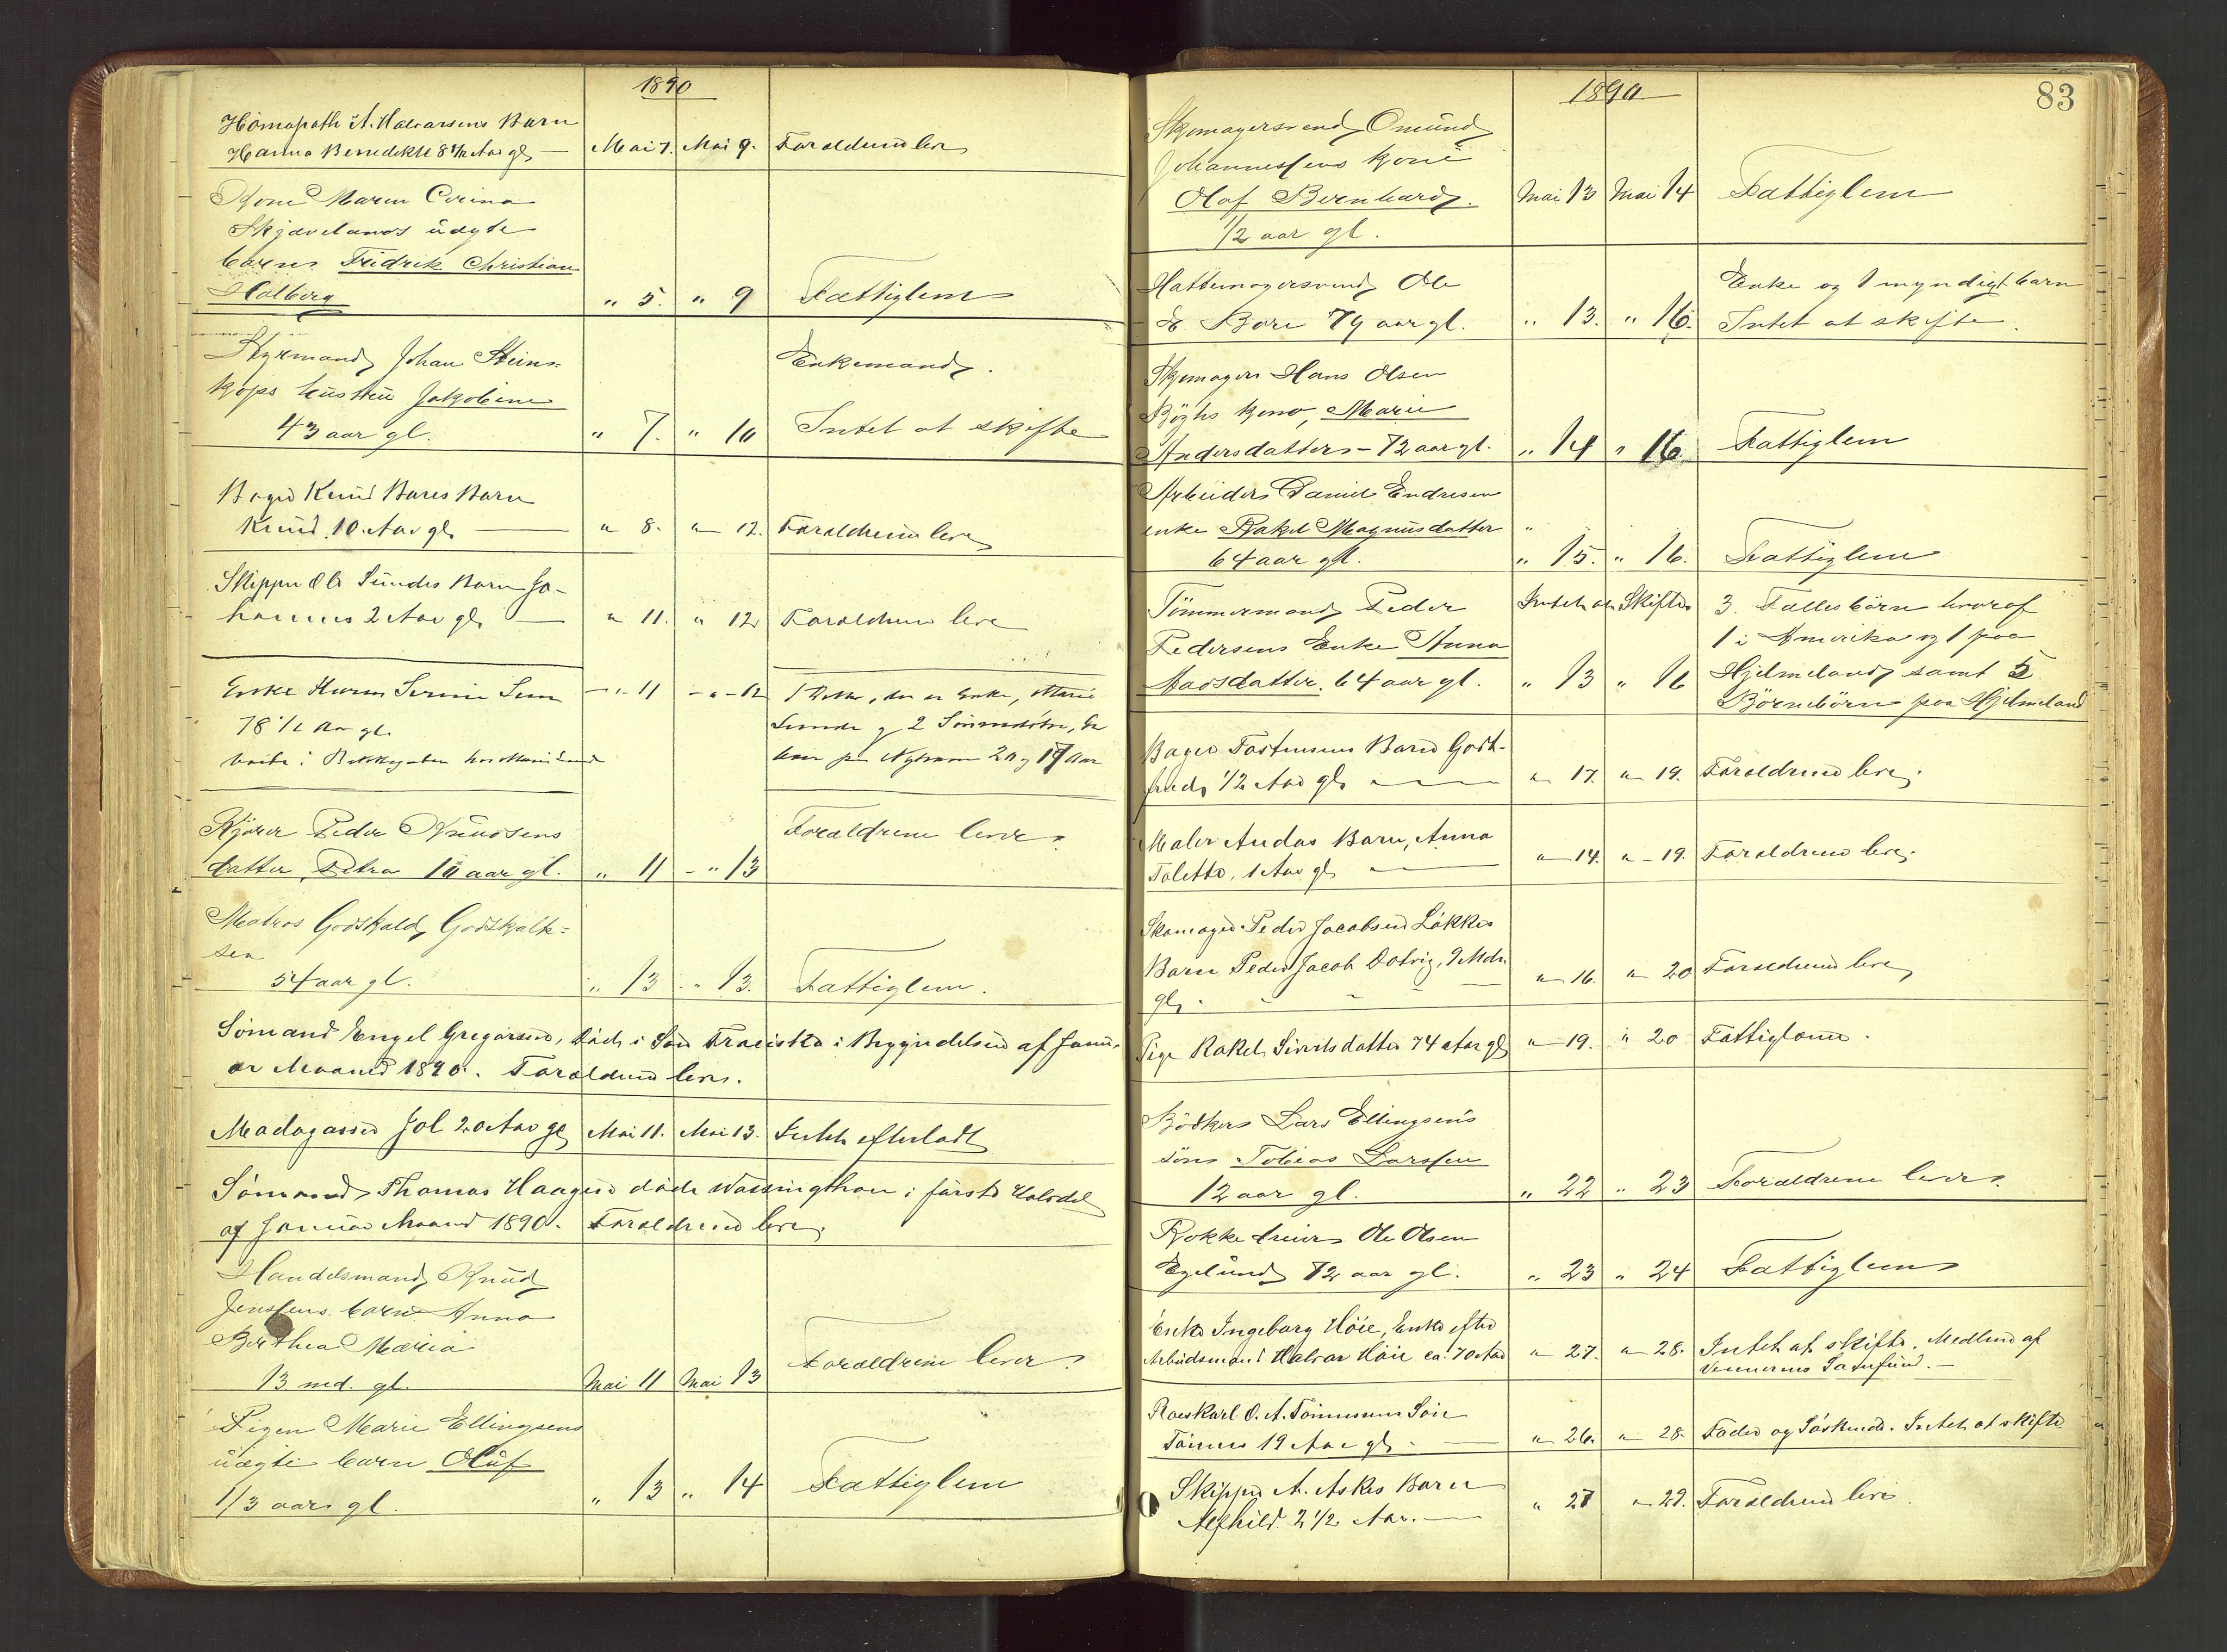 1890
Homøpath A. Halvorsens Barn
Hanna Benedikte 8 Aar gl. Mai 7. Mai 9. Forældrene lever
Kone Maren Corina
Skjævelands uægte
barn Fredrik Christian
Halberg " 5. " 9 Fattiglem
Styrmand Johan Stens-
kjøps hustru Jakobine Enkemand.
43 aar gl. " 7. " 10 Intet at skifte
Bager Knud Bores Barn
Knud 10 Aar gl. " 8. " 12. Forældrene lever
Skipper Ole Sundes Barn Jo-
hannes 2 Aar gl. " 11. " 12. Forældrene leve
Enke Karen Serine " 11 " 12 Enke, Marie
78 1/2 Aar gl. Sunde og 2
20 og 17 Aar
Kjører Peder Knudsens Forældrene lever.
datter Petra 10 aar gl. " 11 " 13
Matros Godskald Godskalk-
sen
54 aar gl. " 13 " 13. Fattiglem.
Sømand Engel Gregersen, død i San Fracisko i Begyndelsen af Janu-
ar Maaned 1890. Forældrene lever.
Madagasser Jol 20 Aar gl. Mai 11. Mai 13. Intet efterladt
Sømand Thomas Haagen døde Wassingthon i første Halvdel
af Januar Maaned 1890. Forældrene lever.
Handelsmand Knud
Jensens barn Anna
Berthea Maria
13 md. gl. Mai 11 Mai 13 Forældrene lever.
Pigen Marie Ellingsens
uægte barn Oluf
1/3 aar gl. " 13 " 14 Fattiglem
83
1890
Skomagersvend Omund
Johannessens kone
Olaf Bernhard. Mai 13 Mai 14 Fattiglem
1/2 aar gl.
Hattemagersvend Ole Enke og 1 myndigt barn
E Bore 79 aar gl. " 13. " 16. Intet at skifte.
Skomager Hans Olsen
Bøghs kone, Marie
Andersdatter - 72 aar gl. " 14 " 16. Fattiglem
Arbeider Daniel Endresen
enke Rakel Magnusdatter "
64 aar gl. " 15. " 16. Fattiglem
Tømmermand Peder Intet at Skifte 3. Fællesbørn hvoraf
Pedersens Enke Anna 1 i Amerika og 1 paa
Madsdatter. 64 aar gl. " 13 " 16 Hjelmeland samt 5
Børnebørn paa Hjelmeland
Bager Tostensens Barn Godt-
fred, 1/2 Aar gl. " 17. " 19. Forældrene lever.
Maler Andas Barn, Anna
Tolette, 1 Aar gl. " 14. " 19. Forældrene lever.
Skomager Peder Jacobsen Løkkes
Barn Peder Jacob, 9 Mdr. " 16. " 20 Forældrene lever
gl.
Pige Rakel Sivertsdatter 74 Aar gl. " 19. " 20 Fattiglem.
Bødker Lars Ellingsens
søn Tobias Larsen
12 aar gl. " 22 " 23 Forældrene lever.
Rokkedreier Ole Olsen
Egelund 72 aar gl. " 23 " 24 Fattiglem
Enke Ingeborg Høie, Enke efter
Arbeidsmand Halvor Høie ca. 70 Aar " 27. " 28. Intet at skifte. Medlem af
Vennernes Samfund.
Roeskarl O. A. Tønnesens Søn
Tønnes 19 Aar gl. " 26. " 28. Fader og Søskende. Intet at skifte
Skipper A. Askes Barn
Alfhild 2 1/2 Aar. " 27 " 29. Forældrene leve.